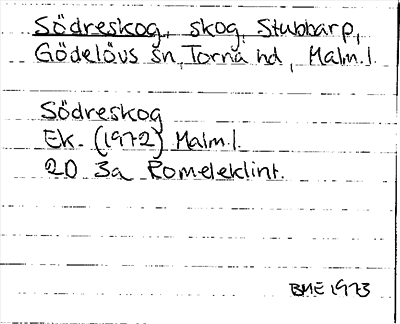 Södreskog, skog, Stubbarp,
Gödelövs sn, Torna hd, Malm.l.
Södreskog
Ek. (1972) Malm.l.
2D 3a Romeleklint.
BME 1973